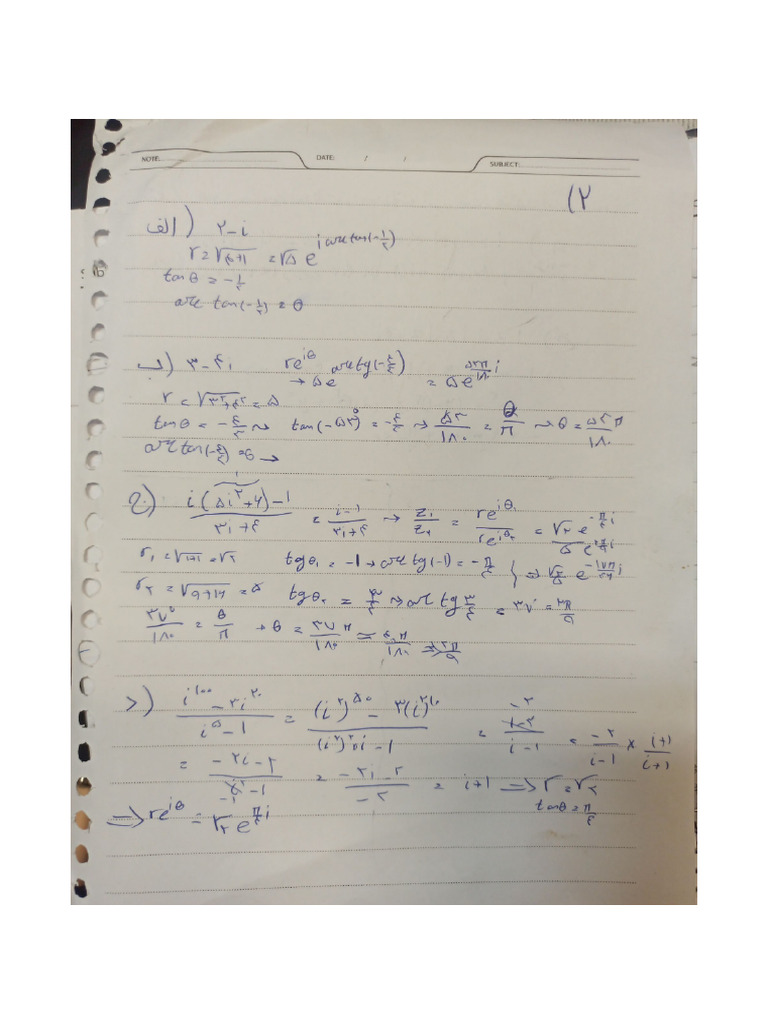 NOTE: DATE: / / SUBJECT:
(۲
الف) ۲-i
r = √(۴+۱) = √۵ e^(i arctan(-۱/۲))
tan θ = -۱/۲
arc tan(-۱/۲) = θ
ب) ۳-۴i re^(iθ) → ۵e^(arctg(-۴/۳)) = ۵e^(۵۳π/۱۸۰ i)
r = √(۳²+۴²) = ۵
tan θ = -۴/۳ ⇝ tan(-۵۳°) = -۴/۳ → ۵۳/۱۸۰ = θ/π ⇝ θ = ۵۳π/۱۸۰
arc tan(-۴/۳) = θ →
ج) (i(۵i²+۶)-۱)/(۳i+۴) = (i-۱)/(۳i+۴) → z₁/z₂ = re^(iθ₁)/re^(iθ₂) = √۲ e^(-π/۴ i)/۵ e^(۲π/۹ i)
r₁ = √(۱+۱) = √۲ tgθ₁ = -۱ → arc tg(-۱) = -π/۴ } ⇒ √۲/۵ e^(-۱۷π/۳۶ i)
r₂ = √(۹+۱۶) = ۵ tgθ₂ = ۳/۴ ⇝ arc tg ۳/۴ = ۳۷° = ۲π/۹
۳۷°/۱۸۰ = θ/π → θ = ۳۷π/۱۸۰ ≈ ۴۰π/۱۸۰ ⇒ ۲π/۹
د) (i^۱۰۰ - ۳i^۲۰)/(i^۵ - ۱) = ((i²)^۵۰ - ۳(i²)^۱۰)/((i²)²i - ۱) = -۲/(i-۱) = -۲/(i-۱) × (i+۱)/(i+۱)
= (-۲i-۲)/(i²-۱) = (-۲i-۲)/-۲ = i+۱ ⇒ r = √۲
-۱ tanθ = π/۴
⇒ re^(iθ) = √۲ e^(π/۴ i)